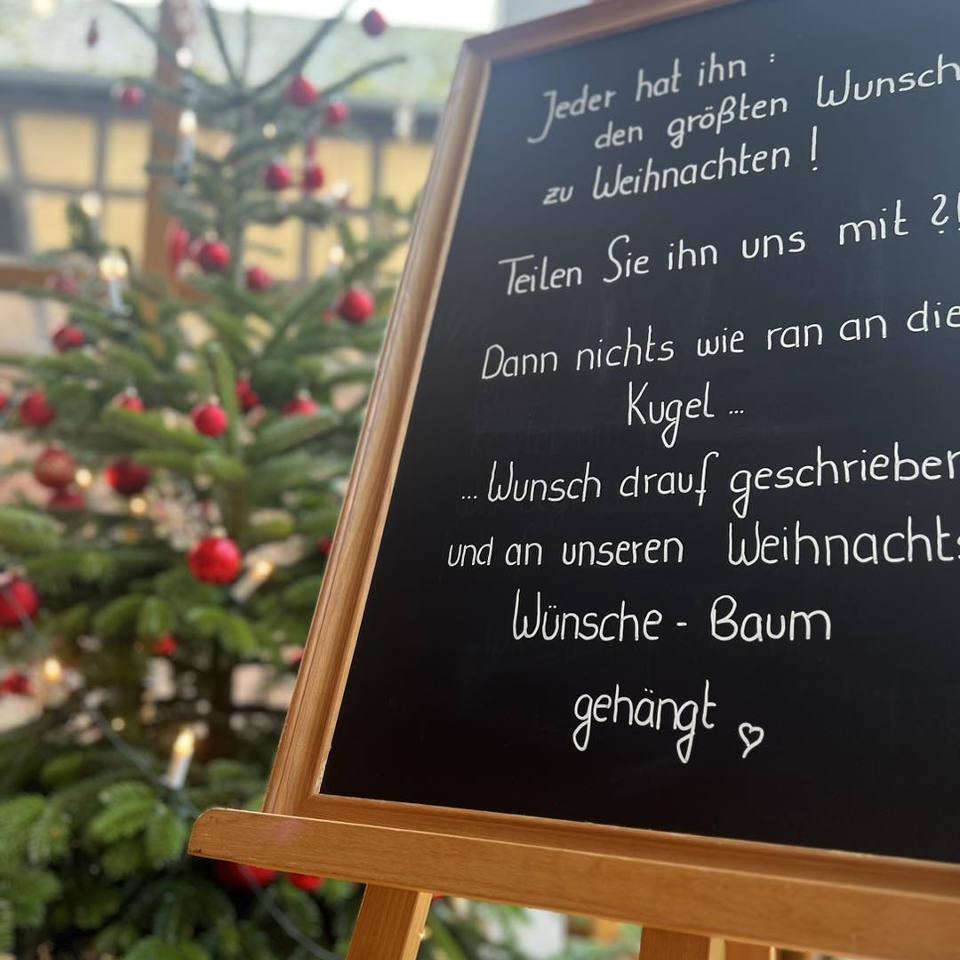 Jeder hat ihn :
den größten Wunsch
zu Weihnachten !
Teilen Sie ihn uns mit ?!
Dann nichts wie ran an die
Kugel ...
... Wunsch drauf geschrieben
und an unseren Weihnachts
Wünsche - Baum
gehängt ♡